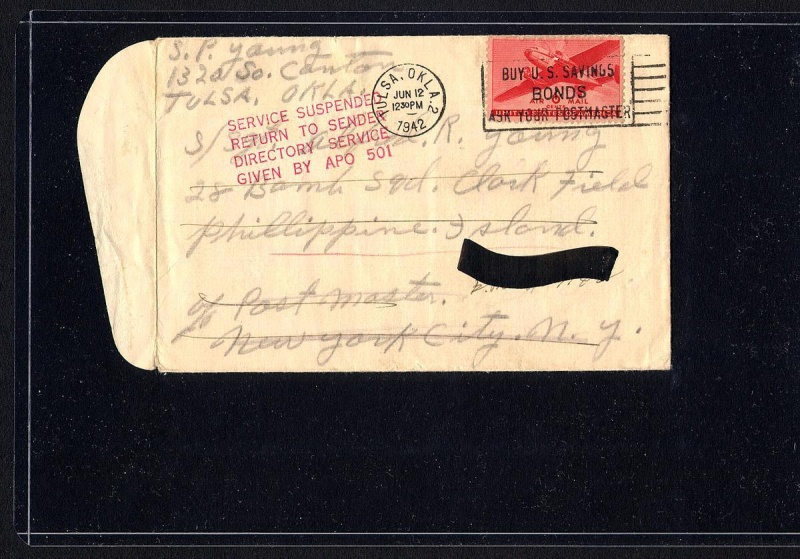 S. P. Young
1320 So. Canton
TULSA, OKLA.
SERVICE SUSPENDED
RETURN TO SENDER
DIRECTORY SERVICE
GIVEN BY APO 501
TULSA, OKLA. 2
JUN 12
12 30 PM
1942
BUY U.S. SAVINGS
BONDS
ASK YOUR POSTMASTER
AIR MAIL
S/Sgt. R. Young
28 Bomb Sqd. Clark Field
Phillippine. Island.
c/o Post Master.
New York City. N. Y.